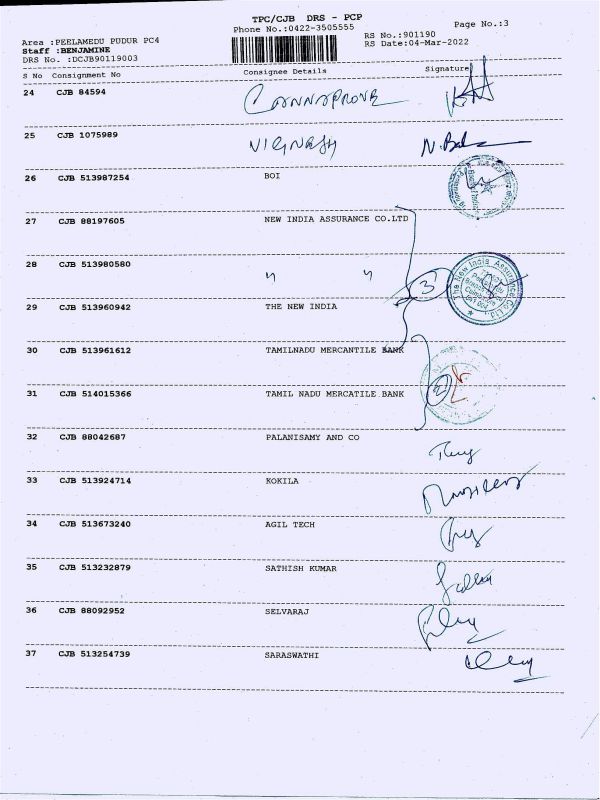 TPC/CJB DRS - PCP
Phone No.:0422-3505555
Page No.:3
Area :PEELAMEDU PUDUR PC4
RS No.:901190
Staff :BENJAMINE
RS Date:04-Mar-2022
DRS No. :DCJB90119003
S No Consignment No Consignee Details Signature
24 CJB 84594
25 CJB 1075989 VIGNESH
26 CJB 513987254 BOI
27 CJB 88197605 NEW INDIA ASSURANCE CO.LTD
28 CJB 513980580 " "
3
The New India Assurance Co. Ltd.
29 CJB 513960942 THE NEW INDIA
30 CJB 513961612 TAMILNADU MERCANTILE BANK
31 CJB 514015366 TAMIL NADU MERCATILE BANK
32 CJB 88042687 PALANISAMY AND CO
33 CJB 513924714 KOKILA
34 CJB 513673240 AGIL TECH
35 CJB 513232879 SATHISH KUMAR
36 CJB 88092952 SELVARAJ
37 CJB 513254739 SARASWATHI